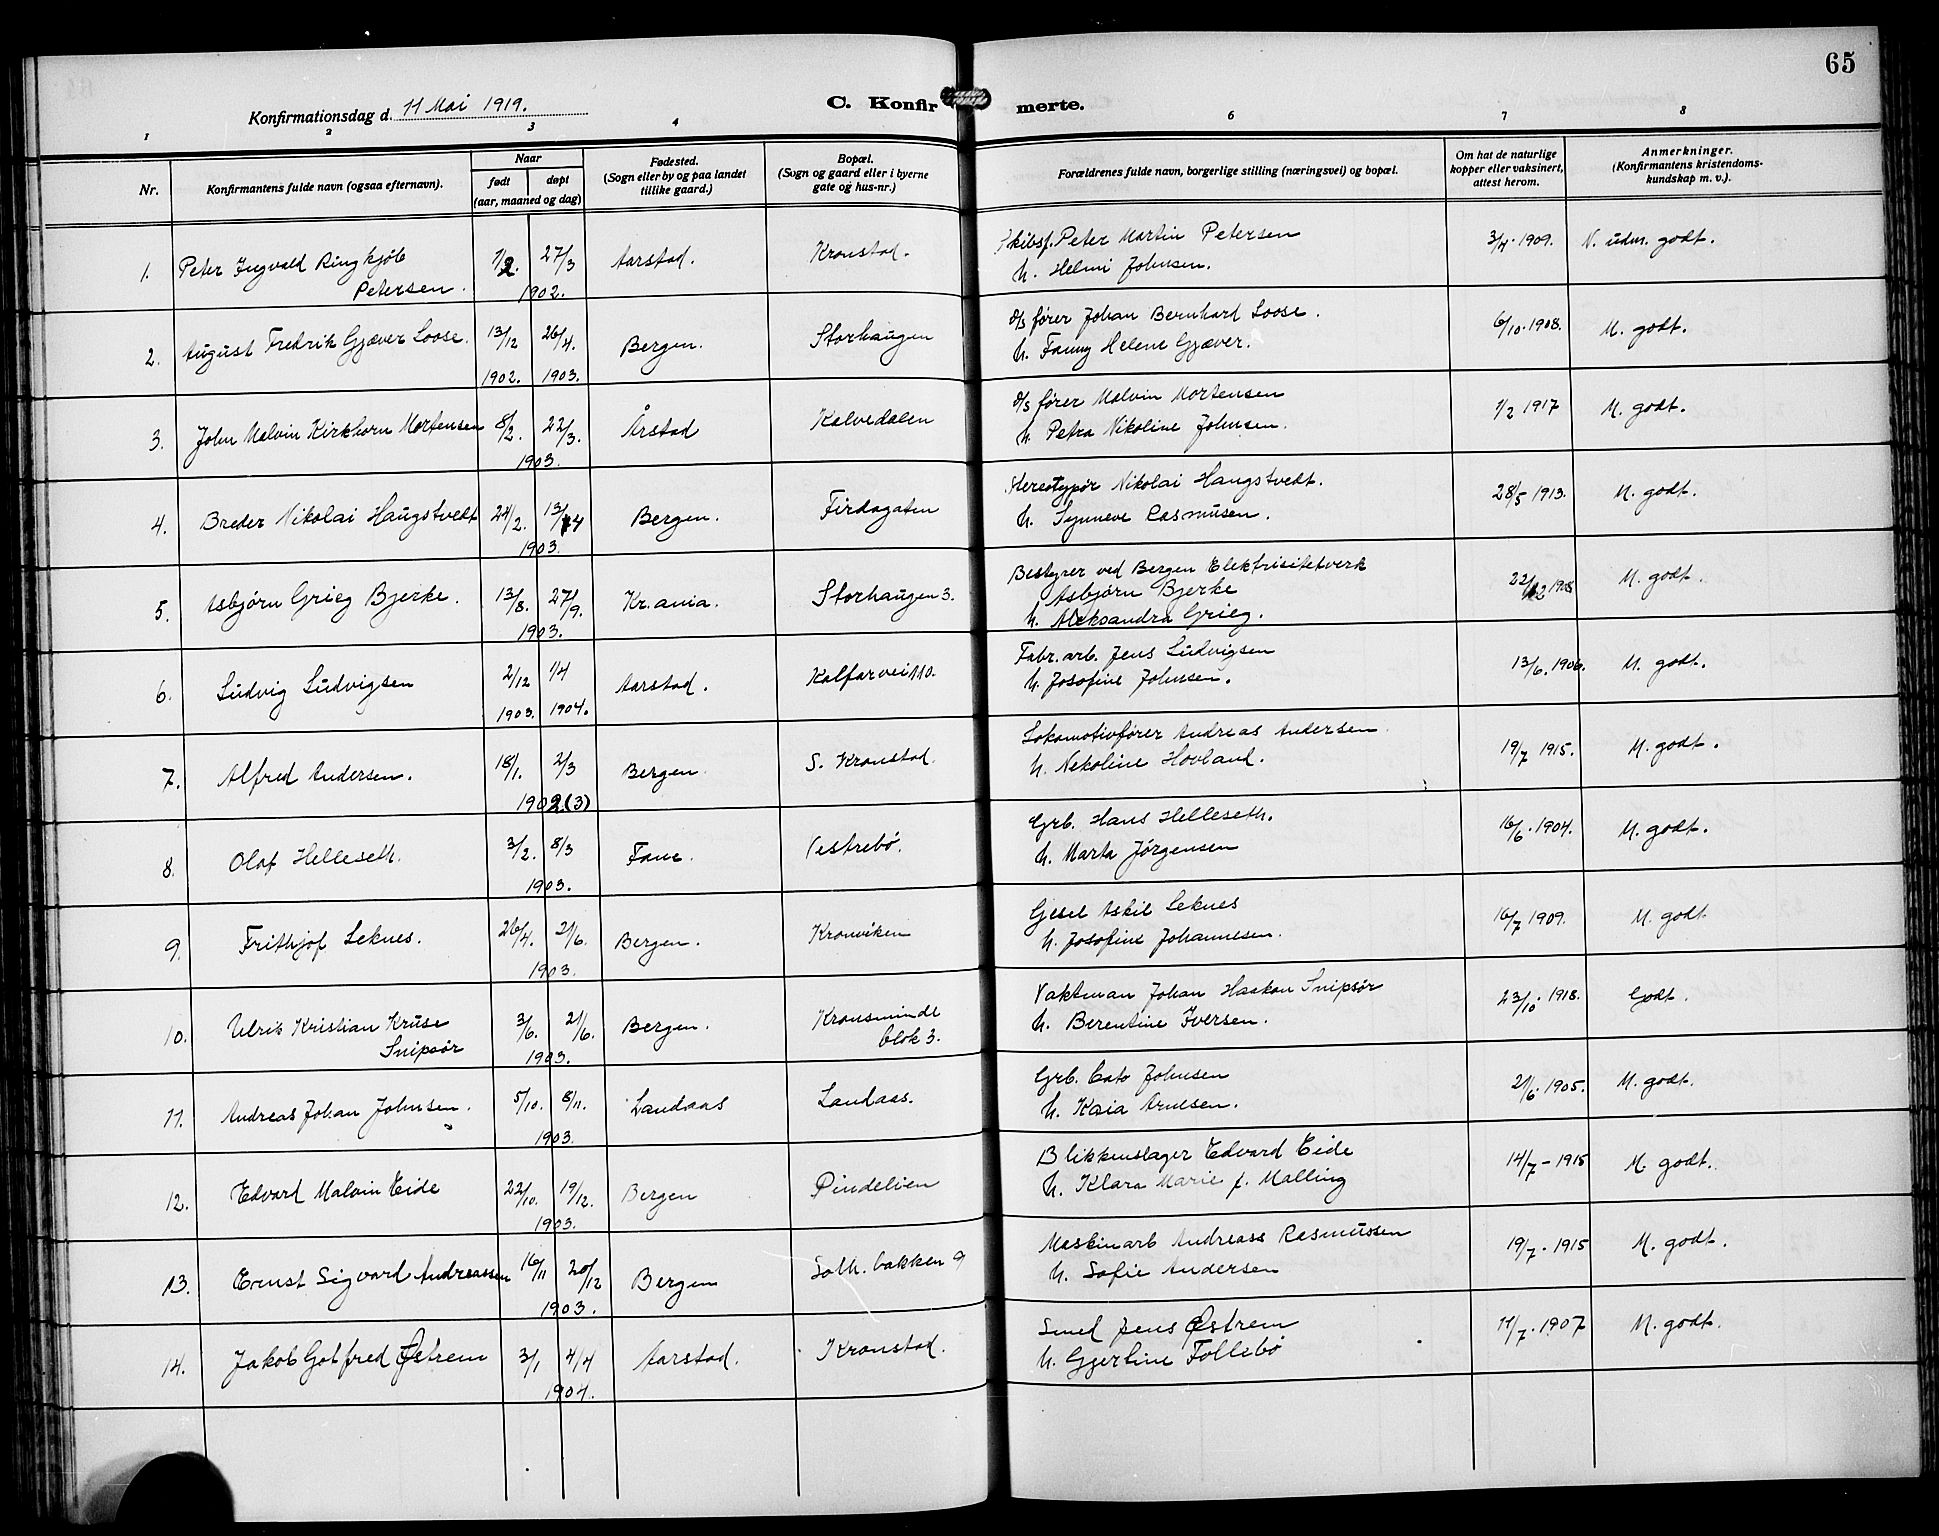 65
Konfirmationsdag d. 11 Mai 1919.
C. Konfirmerte.
1 2 3 4 6 7 8
Nr. Konfirmantens fulde navn (ogsaa efternavn). Naar født døpt (aar, maaned og dag) Fødested. (Sogn eller by og paa landet tillike gaard.) Bopæl. (Sogn og gaard eller i byerne gate og hus-nr.) Forældrenes fulde navn, borgerlige stilling (næringsvei) og bopæl. Om hat de naturlige kopper eller vaksinert, attest herom. Anmerkninger. (Konfirmantens kristendoms-kundskap m. v.).
1. Peter Ingvald Ringkjøb 1/2. 27/3 Aarstad. Kronstad. Skibsf. Peter Martin Petersen 3/4. 1909. N. udm. godt.
Petersen. 1902. h. Helmi Johnsen.
2. August Fredrik Gjæver Loose. 13/12 26/4. Bergen. Storhaugen d/s fører Johan Bernhard Loose. 6/10. 1908. M. godt.
1902. 1903. h. Fanny Helene Gjæver.
3. John Malvin Kirkhorn Mortensen 8/2. 22/3. Årstad Kalvedalen d/s fører Malvin Mortensen 1/2 1917 M. godt.
1903. h. Petra Nikoline Johnsen.
4. Breder Nikolai Haugstvedt 24/2. 13/4 Bergen. Firdagaten Stereotypør Nikolai Haugstvedt. 28/5 1913. M. godt.
1903. h. Synneve Rasmusen.
5. Asbjørn Grieg Bjerke. 13/8. 27/9. Kr.ania. Storhaugen 3. Bestyrer ved Bergen Elektrisitetverk 22/12 1908 M. godt.
1903. Asbjørn Bjerke
h. Aleksandra Grieg.
6. Ludvig Ludvigsen 2/12 1/4 Aarstad. Kalfarvei 110. Fabr. arb. Jens Ludvigsen 13/6. 1906. M. godt.
1903. 1904. h. Josofine Johnsen.
7. Alfred Andersen. 18/1. 2/3 Bergen. S. Kronstad. Lokomotivfører Andreas Andersen. 19/7 1915. M. godt.
1902.(3) h. Nekoline Hovland.
8. Olaf Helleseth. 3/2. 8/3 Fane. Vestrebø. Grb. Hans Helleseth. 16/6. 1904. M. godt.
1903. h. Marta Jørgensen
9. Frithjof Leknes. 26/4. 21/6. Bergen. Kronviken Gjesel Askil Leknes 16/7 1909. M. godt
1903. h. Josofine Johannesen.
10. Ulrik Kristian Kruse 3/6. 21/6. Bergen. Kronsminde Vaktman Johan Haakon Snipsør 23/10. 1918. Godt.
Snipsør 1903. blok 3. h. Berentine Iversen.
11. Andreas Johan Johnsen. 5/10. 8/11. Landaas Landaas. Grb. Cato Johnsen 21/6. 1905. M. godt.
1903. h. Kaia Arnesen.
12. Edvard Malvin Eide 22/10. 19/12. Bergen Pindelien Blikkenslager Edvard Eide 14/7 - 1915 M. godt.
1903. h. Klara Marie f. Malling
13. Ernst Sigvard Andreassen 16/11 20/12 Bergen Solh. bakken 9 Maskinarb Andreass Rasmussen 19/7. 1915 M. godt.
1903. h. Sofie Andersen
14. Jakob Gotfred Østrem 3/1 4/4 Aarstad. Kronstad. Smed Jens Østrem 11/7. 1907 M. godt.
1904. h. Gjertine Follebø